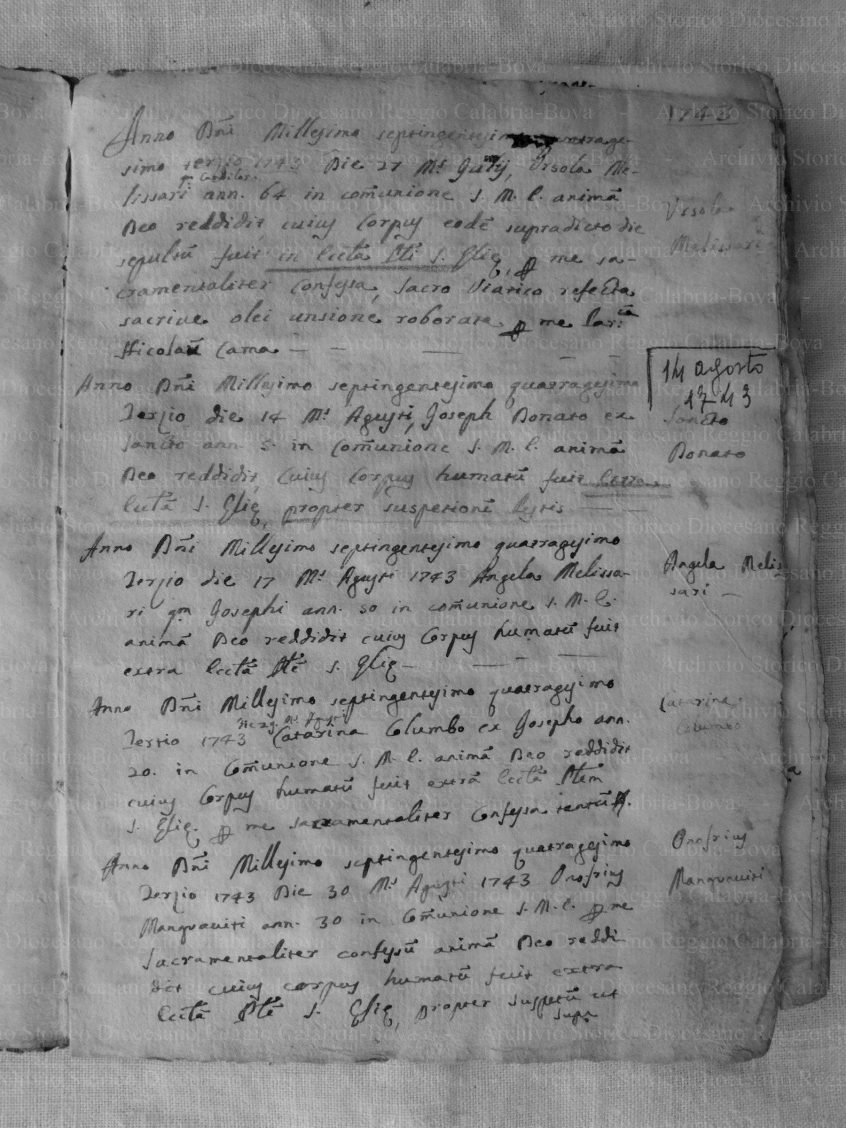 1743
Anno Dñi Millesimo septingentesimo quatrage-
simo tertio 1743 Die 27 Ms Julij, Ursola Me-
lissari ann. 64 in com̃unione S. M. E. animã
Deo reddidit cuius Corpus eodẽ supradicto die
sepultũ fuit in Ecctã S. Elię, me sa-
cramentaliter Confessa, sacro Viatico refecta
sacrique olei unsione roborata me
Nicolaũ Cama
Ursola
Melissari
Anno Dñi Millesimo septingentesimo quatragesimo
Tertio die 14 Ms Agusti, Joseph Donato ex
Sancto ann. 5. in Com̃unione S. M. E. animã
Deo reddidit, Cuius Corpus humatũ fuit extra
Ecctã S. Elię, propter suspetionẽ
14 agosto
1743
Sancto
Donato
Anno Dñi Millesimo septingentesimo quatragesimo
Tertio die 17 Ms Agusti 1743 Angela Melissa-
ri qm Josephi ann. 50 in com̃unione S. M. E.
animã Deo reddidit cuius Corpus humatũ fuit
extra Ecctã S. Elię
Angela Melis
sari
Anno Dñi Millesimo septingentesimo quatragesimo
Tertio 1743 Catarina Columbo ex Josepho ann.
20. in Com̃unione S. M. E. animã Deo reddidit
cuius Corpus humatũ fuit extrã Ecctã
S. Elię. me sacramentaliter Confessa
Catarina
Columbo
Anno Dñi Millesimo septingentesimo quatragesimo
Tertio 1743 Die 30 Ms Agusti 1743 Onofrius
Manquaviti ann. 30 in Com̃unione S. M. E. me
Sacramentaliter confessũ animã Deo reddi
dit cuius corpus humatũ fuit extra
Ecctã S. Elię, propter suspetũ ut
supr
Onofrius
Manquaviti
Archivio Storico Diocesano Reggio Calabria-Bova